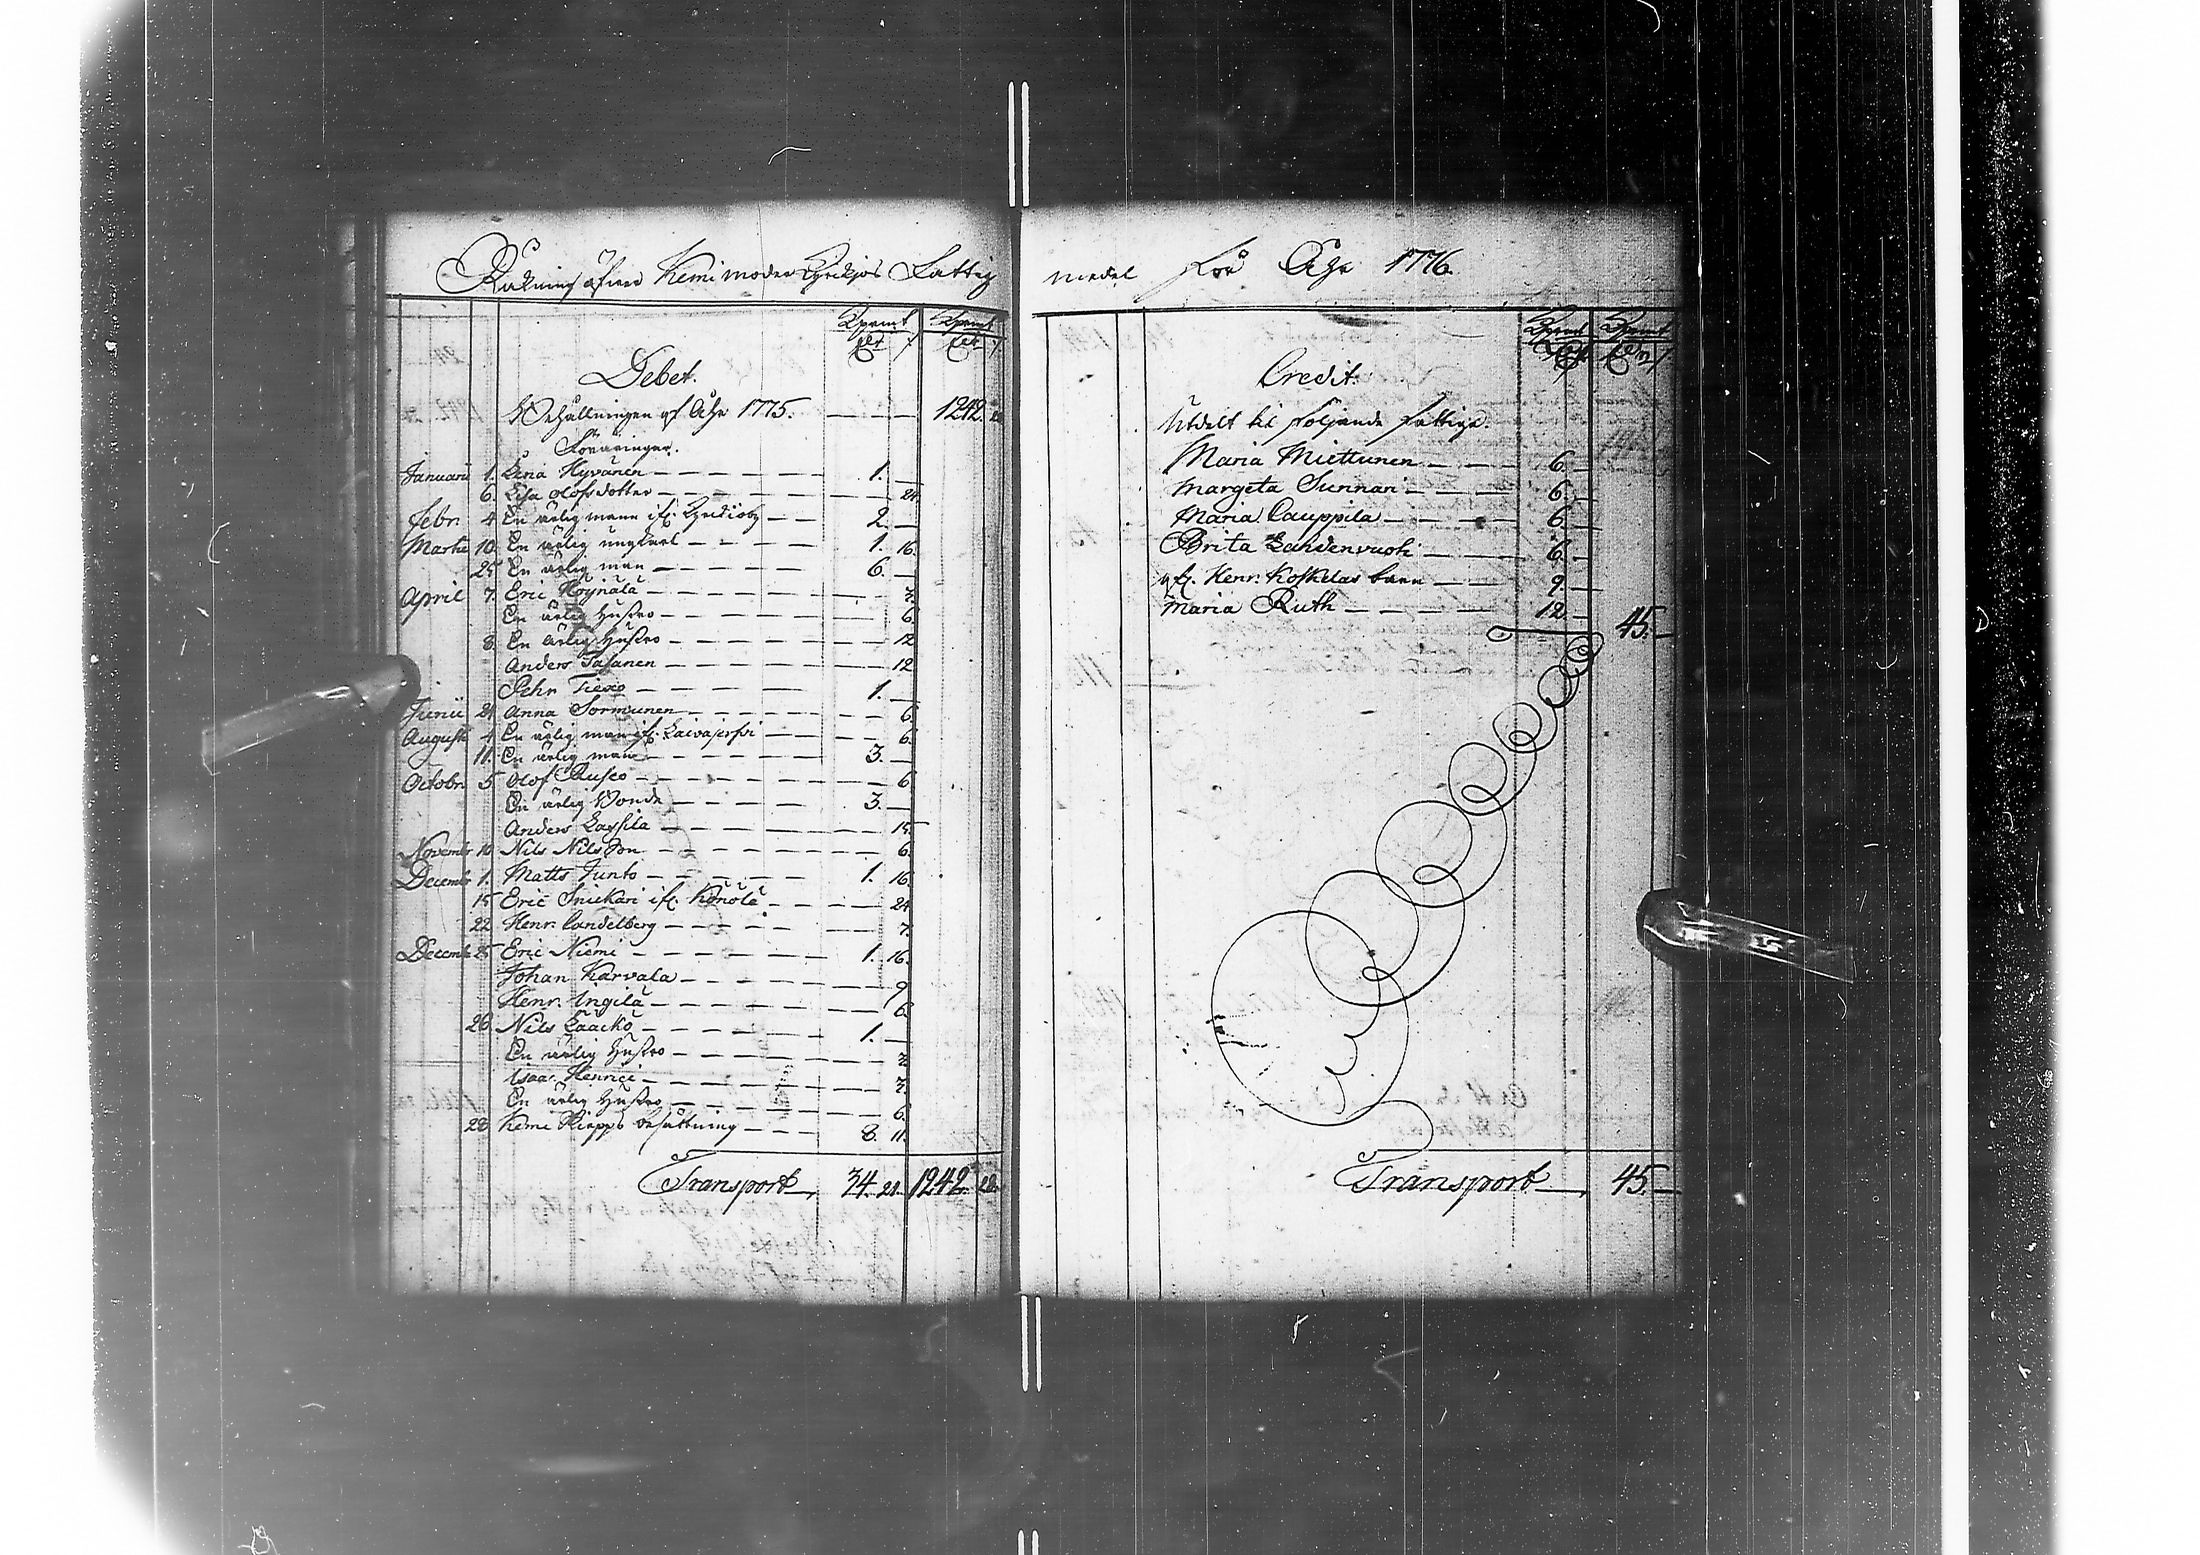 Räkning öfwer Kemi moder Kyrckjos Fattig
Kpmt Kpmt
Debet.
Behållningen af Åhr 1775. 1242.
Föräringar.
Januarii 1. Lena Hyvänen 1.
6. Lisa Olofsdotter 24.
Febr. 4 En ärlig mann ifr. Kyrckioby 2.
Martii 10. En ärlig ungkarl 1. 16.
25 En ärlig man 6.
April 7. Eric Höynälä 3.
En ärlig Hustro 6.
8. En ärlig Hustro 12
Anders Tasanen 12
Pehr Tiexo 1.
Junii 24 Anna Sormunen 6.
Augusti 4 En ärlig man ifr. Laivajerfvi 6.
11. En ärlig man 3.
Octobr. 5 Olof Rusco 6.
En ärlig Bonde 3.
Anders Lassila 15.
Novembr 10 Nils Nilsson 6.
Decembr 1. Matts Junto 1. 16.
15 Eric Snickari ifr. Könölä 24
22 Henr. Candelberg 7.
Decembr 25 Eric Niemi 1. 16.
Johan Karvala 9.
Henr. Ingilä 6.
26 Nils Laacko 1.
En ärlig Hustro 3.
Isaac Henrici 3.
En ärlig Hustro 6.
28 Kemi Skepps besättning 8. 11.
Transport 34. 21. 1242.
medel för Åhr 1776.
Credit.
Utdelt til följande fattiga.
Maria Miettunen 6.
Margeta Sunnari 6.
Maria Cauppila 6.
Brita 6.
Henr. Koskelas barn 9.
Maria Ruth 12. 45.
Transport 45.